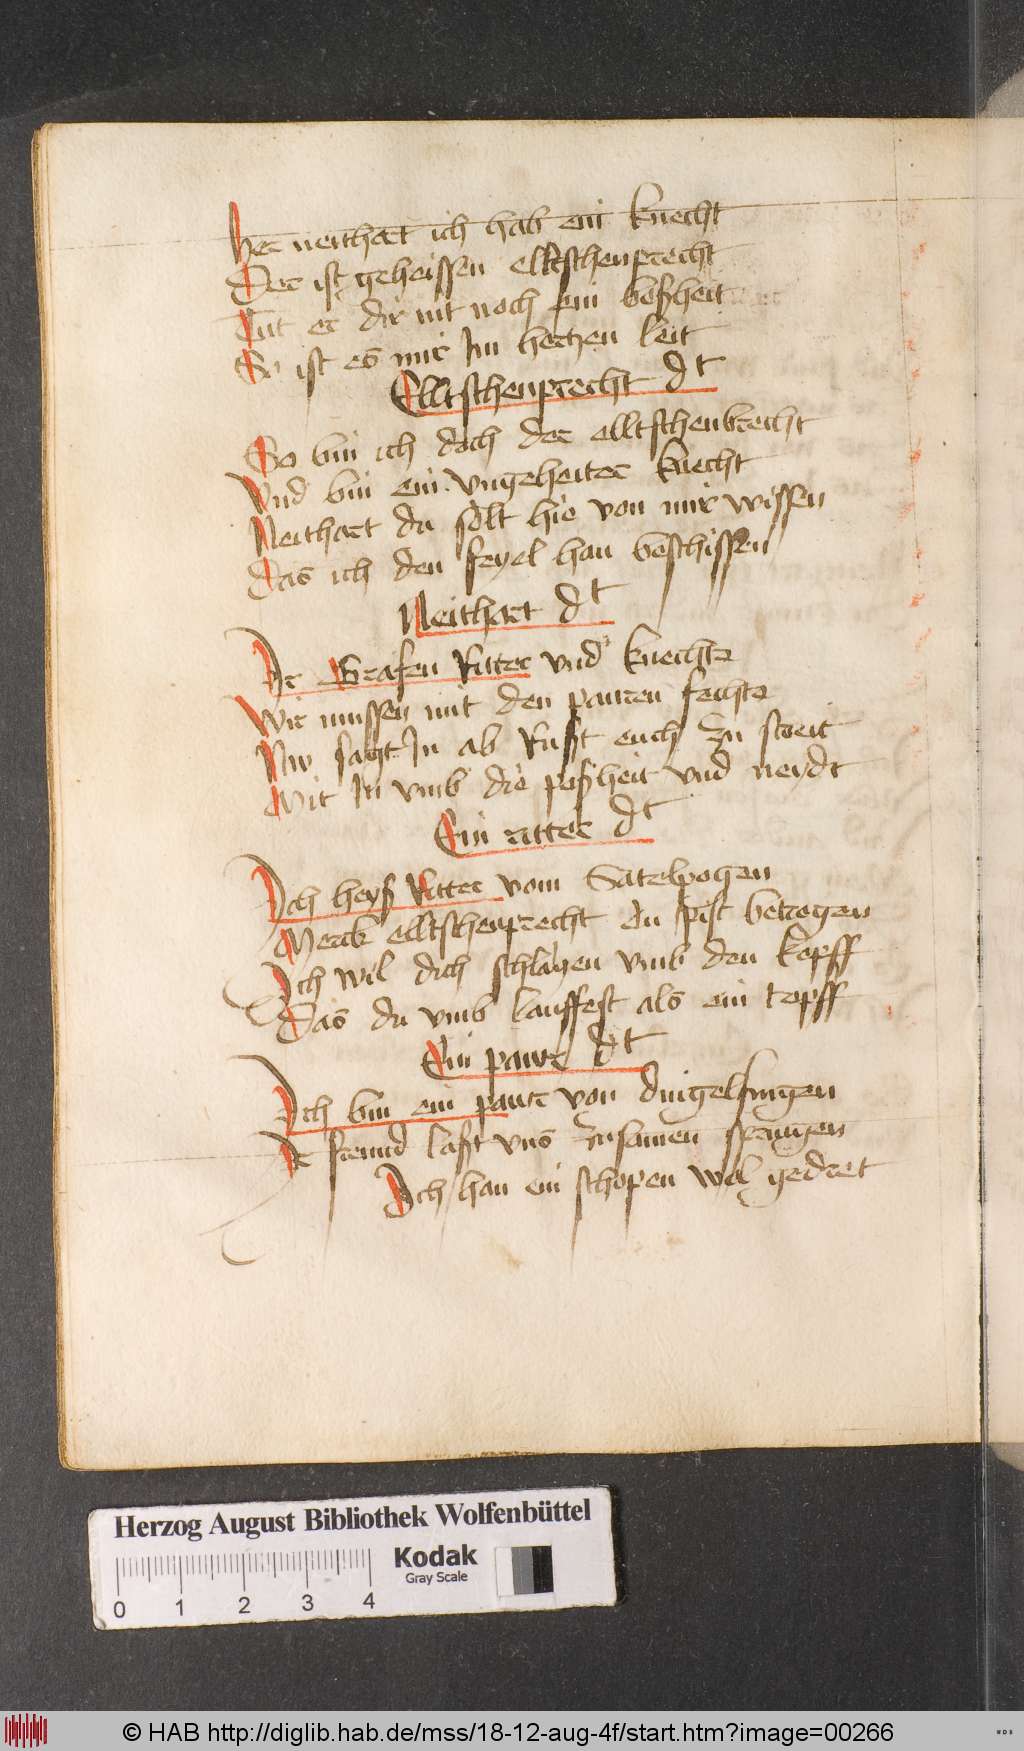 Her neithart ich hab ein knecht
Der ist geheissen elltschenprecht
Tut er dir nit noch ein boßheit
So ist es mir Im hertzen leit
Elltschenprecht dt
So bin ich doch der elltschenbrecht
Vnd bin ein vngeheiter knecht
Neithart du solt hie von mir wissen
Das ich den feyel han beschissen
Neithart dt
Ir Grafen Ritter vnd knechte
Wir mussen mit den pauren fechte
Nw sagt In ab Rust euch zu streit
Mit In vmb die poßheit vnd neydt
Ein ritter dt
Ich heyß Ritter vom Satelpogen
Merck elltschenprecht du pist betrogen
Ich wil dich schlagen vmb den kopff
Das du vmb lauffest als ein topff
Ein paur dt
Ich bin ein paur von dingelfingen
Ir freund laßt vns zusamen springen
Ich han ein schopen wol gedret
Herzog August Bibliothek Wolfenbüttel
Kodak
Gray Scale
0 1 2 3 4
© HAB http://diglib.hab.de/mss/18-12-aug-4f/start.htm?image=00266